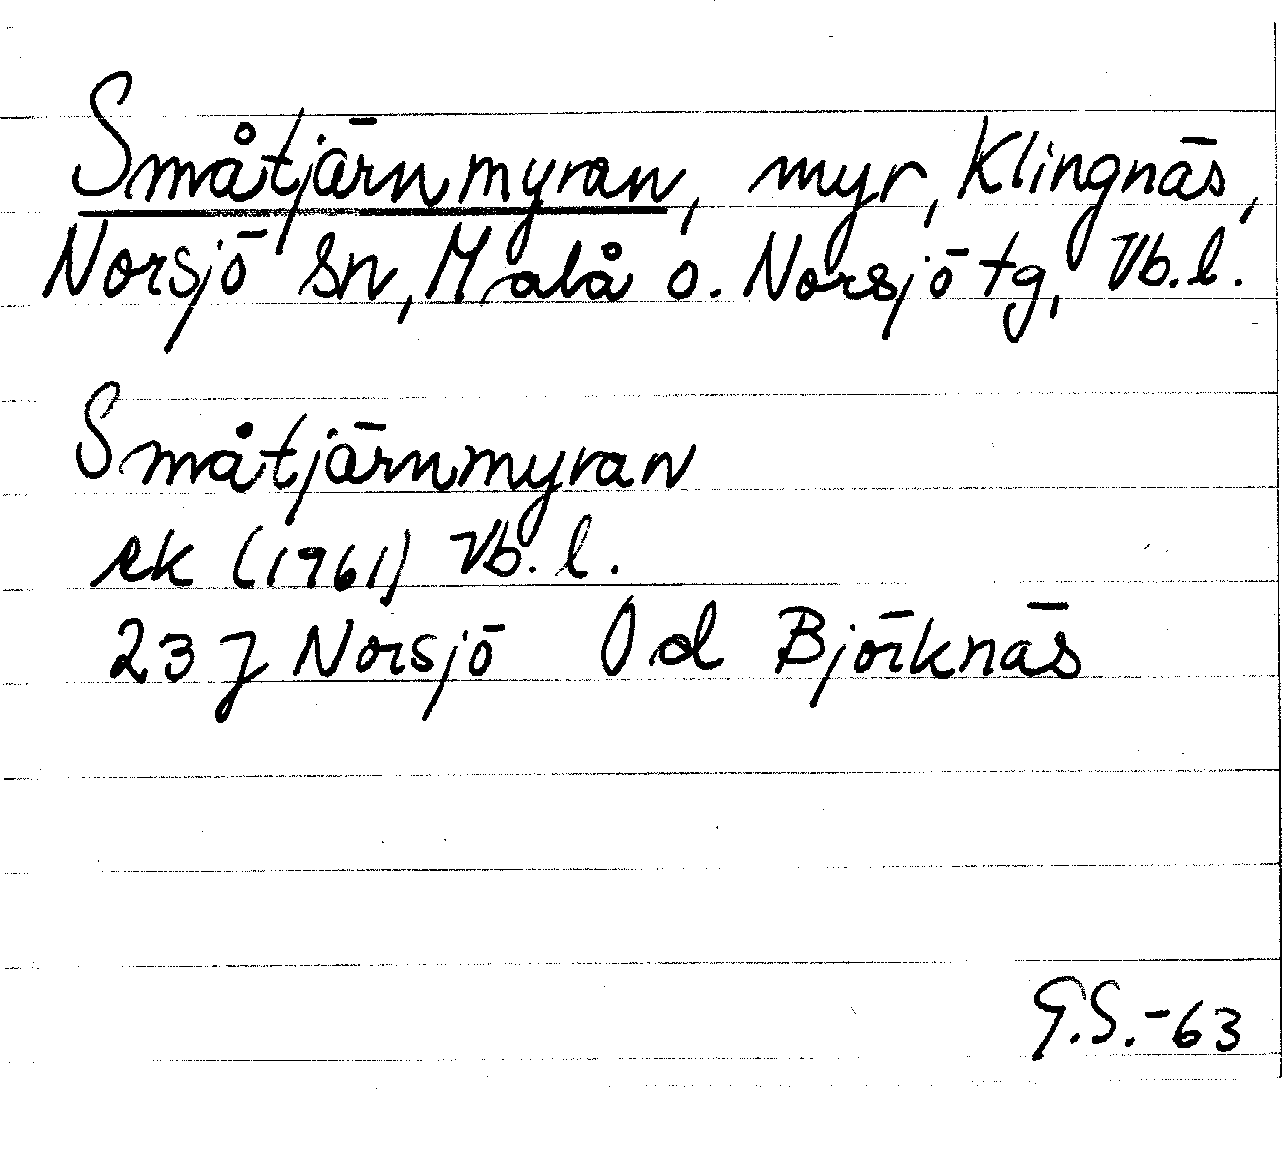 Småtjärnmyran, myr, Klingnäs,
Norsjö sn, Malå o. Norsjö tg, Vb.l.
Småtjärnmyran
ek (1961) Vb. l.
23 J Norsjö 0 d Björknäs
G.S.-63